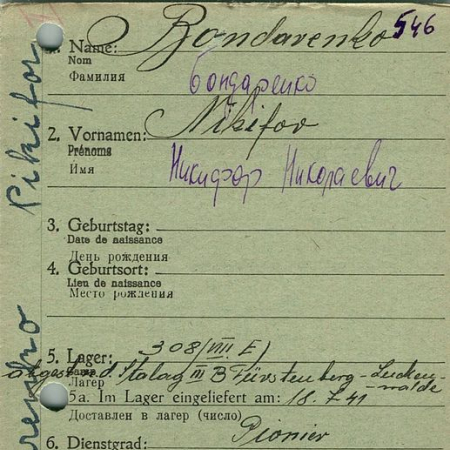 546
1. Name: Bondarenko
Nom
Фамилия Бондаренко
2. Vornamen: Nikifor
Prénoms
Имя Никифор Николаевич
3. Geburtstag:
Date de naissance
День рождения
4. Geburtsort:
Lieu de naissance
Место рождения
5. Lager: 308 (VIII E)
Stalag III B Fürstenberg - Lucken-
Лагерь - walde
5a. Im Lager eingeliefert am: 18.7.41
Доставлен в лагерь (число)
6. Dienstgrad: Pionier
Pikifor